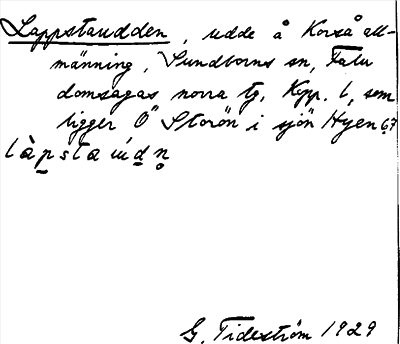 Lappstaudden, udde å Korså all-
männing, Sundborns sn, Falu
domsagas norra tg, Kopp. l, som
ligger Ö Storön i sjön Hyen 67
làpstaúdn
G. Tideström 1929